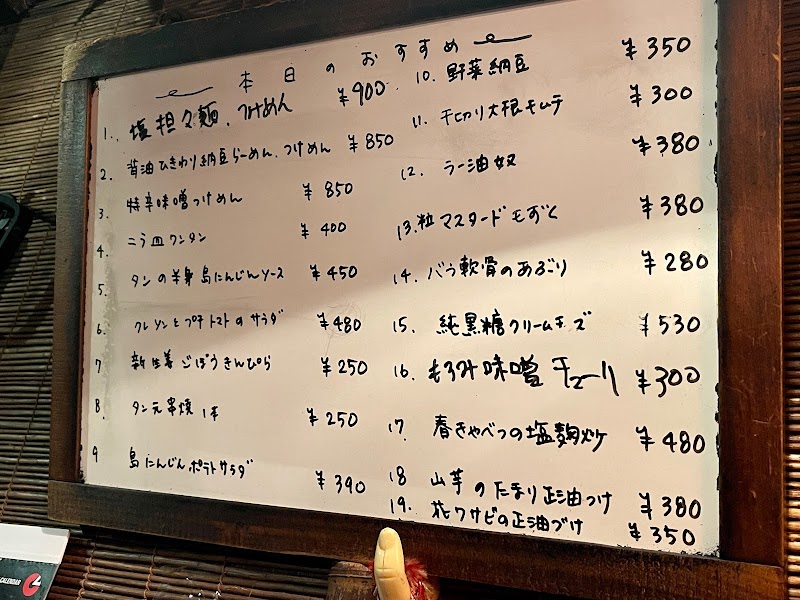 本日のおすすめ
1. 塩担々麺、つけめん ¥900
2. 醤油ひきわり納豆らーめん、つけめん ¥850
3. 特辛味噌つけめん ¥850
4. ニラ皿ワンタン ¥400
5. タンの半身 島にんじんソース ¥450
6. クレソンとプチトマトのサラダ ¥480
7 新生姜ごぼうきんぴら ¥250
8. タン元串焼 1本 ¥250
9 島にんじんポテトサラダ ¥390
10. 野菜納豆 ¥350
11. 千切り大根キムチ ¥300
12. ラー油奴 ¥380
13. 粒マスタードもずく ¥380
14. バラ軟骨のあぶり ¥280
15. 純黒糖クリームチーズ ¥530
16. もろみ味噌 ¥300
17. 春きゃべつの塩麹炒 ¥480
18 山芋のたまり正油つけ ¥380
19. 花ワサビの正油づけ ¥350
CALENDAR